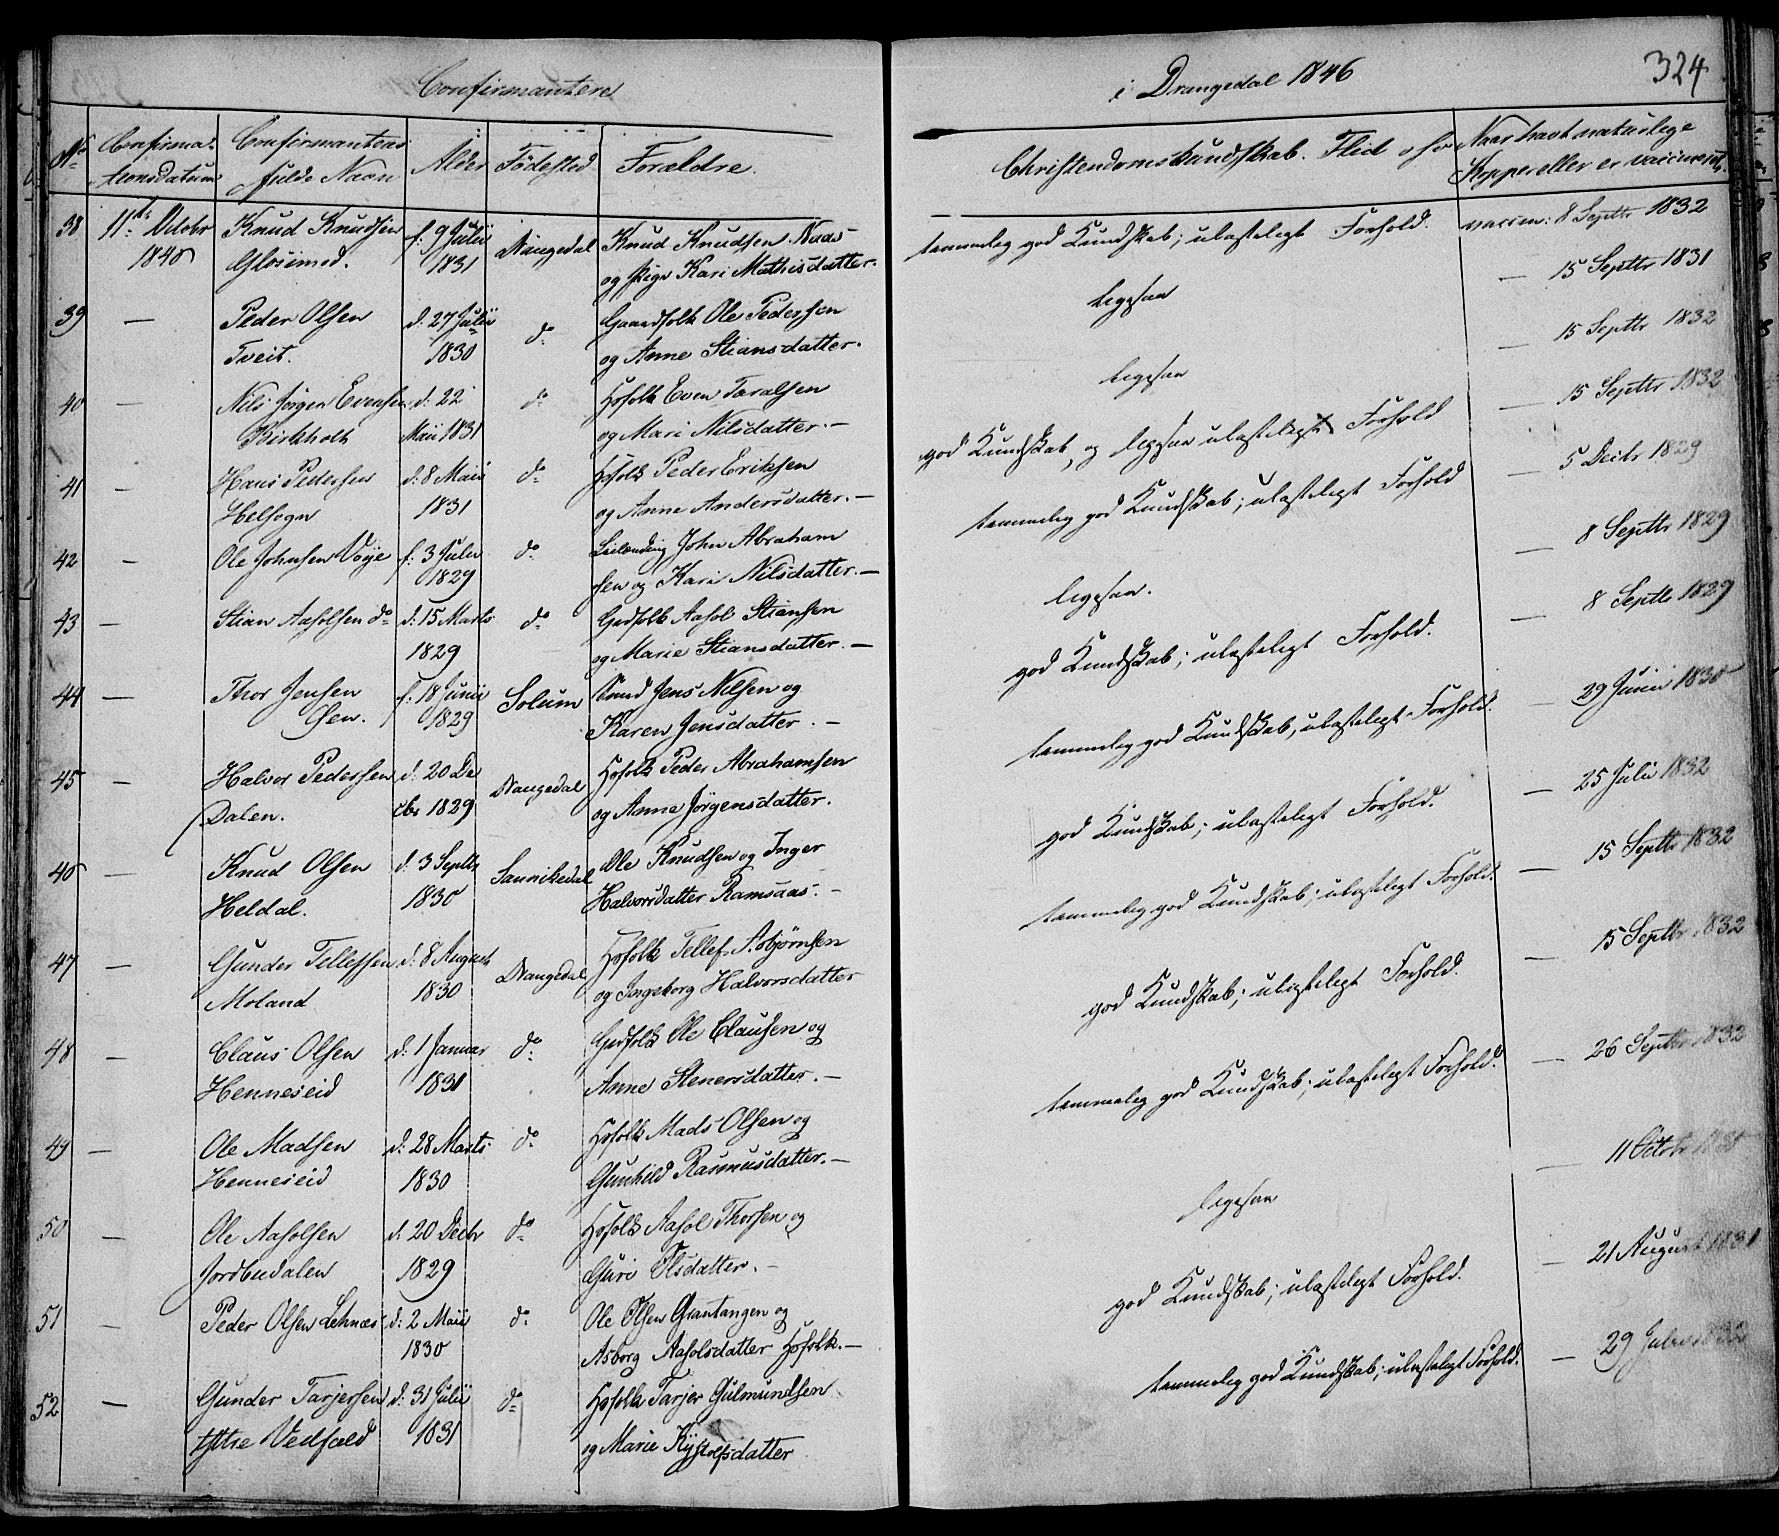 Confirmantere
i Drangedal 1846
324
No
Confirma-
tionsdatum
Confirmantens
fulde Navn
Alder
Födested
Forældre.
Christendomskundskab. Flid
Naar havt naturlige
Kopper eller er vaccineret.
38 11te Octobr Knud Knudsen f. 9 Julii Drangedal Knud Knudsen Naas- temmelig god Kundskab; ulasteligt Forhold. vaccin: 8 Septbr 1832
1846 Gloseimod. 1831 og Pige Kari Mathisdatter.
39 — Peder Olsen d. 27 Julii do Gaardfolk Ole Pedersen ligesaa — 15 Septbr 1831
Tveit. 1830 og Anne Stiansdatter.
40 — Nils Jörgen Evensen d. 22 do Hosfolk Even Taralsen ligesaa — 15 Septbr 1832
Birkholt Maii 1831 og Mari Nilsdatter. —
41 — Hans Pedersen d. 8 Maii do Hosfolk Peder Eriksen god Kundskab, og ligesaa ulasteligt Forhold — 15 Septbr 1832
Helsogn 1831 og Anne Andersdatter. —
42 — Ole Johnsen Voje f. 3 Julii do Leilending John Abraham temmelig god Kundskab; ulasteligt Forhold — 5 Decbr 1829
1829 sen og Kari Nilsdatter. —
43 — Stian Aasolsen do d. 15 Marts do Gaardfolk Aasol Stiansen ligesaa. — 8 Septbr 1829
1829 og Marie Stiansdatter. —
44 — Thor Jensen f. 18 Junii Solum Jens Nilsen og god Kundskab; ulasteligt Forhold. — 8 Septb 1829
1829 Karen Jensdatter. —
45 — Halvor Pedersen d. 20 De Drangedal Hosfolk Peder Abrahamsen temmelig god Kundskab, ulasteligt Forhold. — 29 Junii 1830
Dalen. cbr 1829 og Anne Jörgensdatter.
46 — Knud Olsen d. 3 Septbr Sannikedal Ole Knudsen og Inger god Kundskab; ulasteligt Forhold. — 25 Julii 1832
Heldal. 1830 Halvorsdatter Ramsaas. —
47 — Gunder Tellefsen d. 8 August Drangedal Hosfolk Tellef Asbjørnsen temmelig god Kundskab; ulasteligt Forhold. — 15 Septbr 1832
Moland 1830 og Ingeborg Halvorsdatter
48 — Claus Olsen d. 1 Januar do Gaardfolk Ole Clausen og god Kundskab; ulasteligt Forhold. — 15 Septbr 1832
Henneseid 1831 Anne Stenersdatter. —
49 — Ole Madsen d. 28 Marts do Hosfolk Mads Olsen og temmelig god Kundskab; ulasteligt Forhold. — 26 Septbr 1832
Henneseid 1830 Gunhild Rasmusdatter. —
50 — Ole Aasolsen d. 20 Decbr do Hosfolk Aasol Thorsen og ligesaa — 11 Octob
Jordbudalen 1829 Guri Olsdatter. —
51 — Peder Olsen Lehnæs d. 2 Maii do Ole Olsen Grantangen og god Kundskab; ulasteligt Forhold. — 21 August 1831
1830 Asborg Aasolsdatter Hosfolk. —
52 — Gunder Tarjersen d. 31 Julii do Hosfolk Tarjer Gulmundsen temmelig god Kundskab; ulasteligt Forhold. — 29 Julii 1832
Yttre Vedfald 1831 og Marie datter